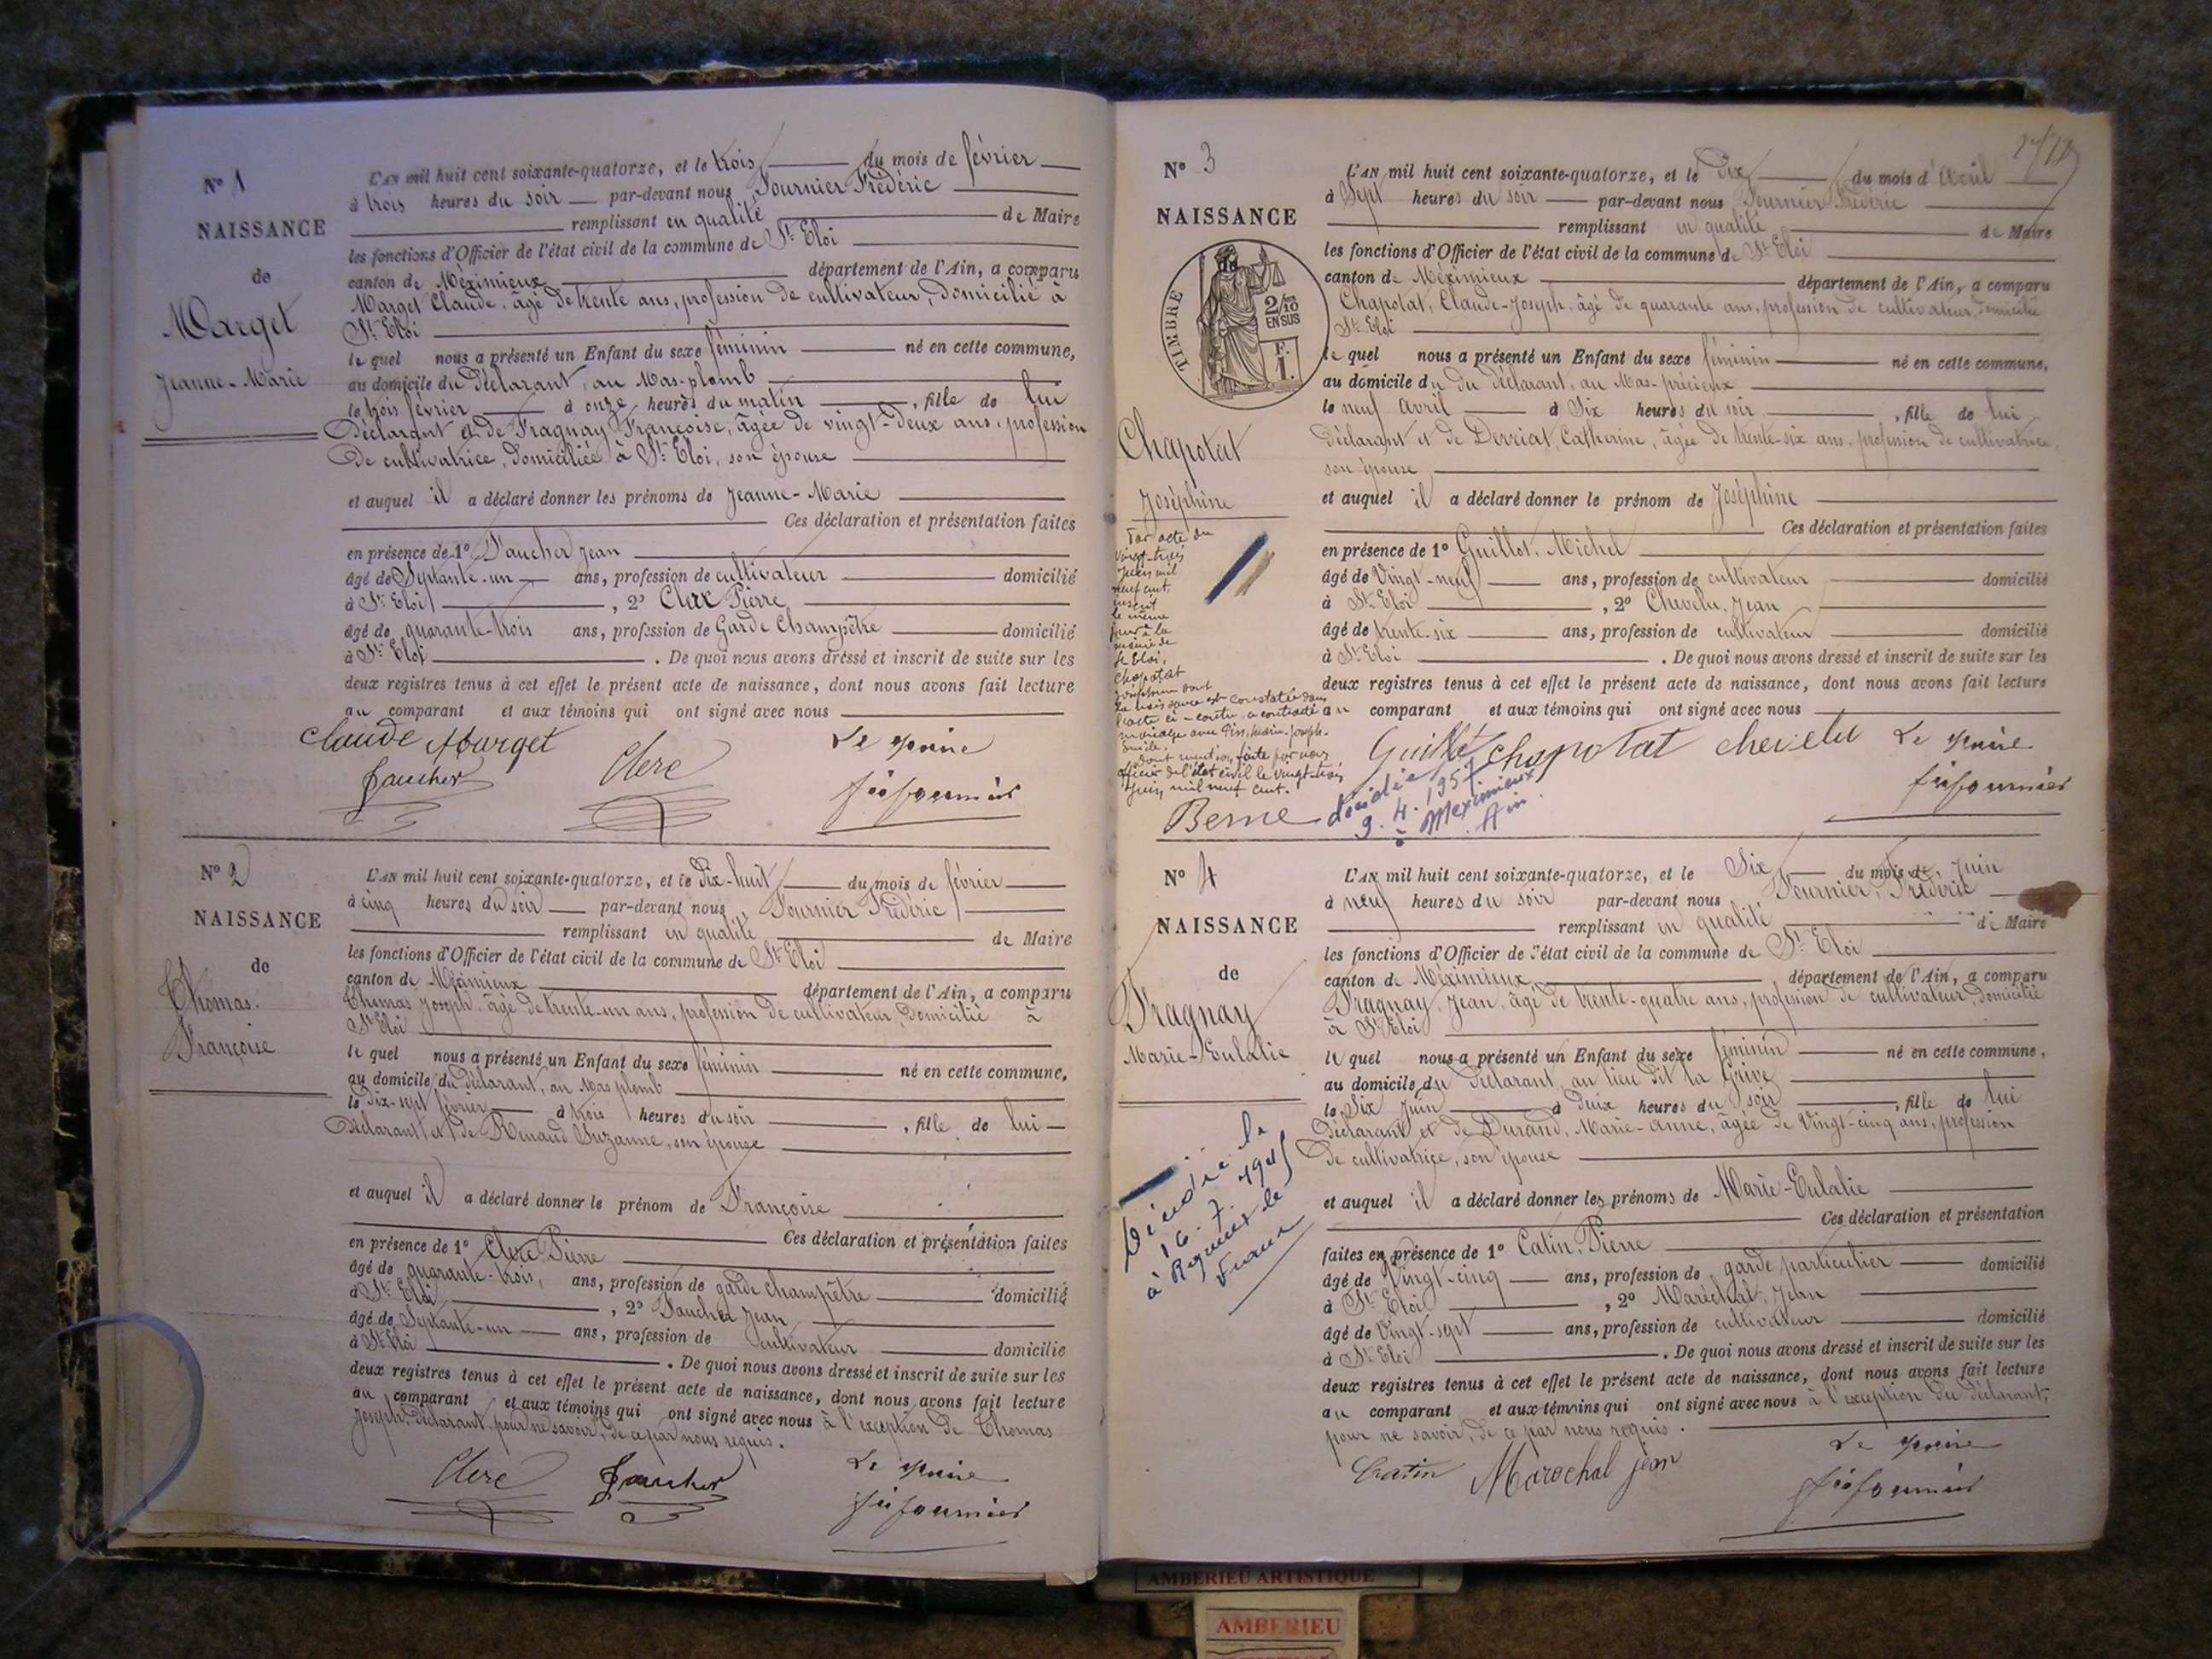 N° 1
NAISSANCE
de
Marget
Jeanne-Marie
L'AN mil huit cent soixante-quatorze, et le trois du mois de février
à trois heures du soir par-devant nous Fournier Frédéric
remplissant en qualité de Maire
les fonctions d'Officier de l'état civil de la commune de St Eloi
canton de Méximieux département de l'Ain, a comparu
Marget Claude, âgé de trente ans, profession de cultivateur, domicilié à
St Eloi
le quel nous a présenté un Enfant du sexe féminin né en cette commune,
au domicile du déclarant, au Mas-plomb
le trois février à onze heures du matin, fille de lui
déclarant et de Fragnay Françoise, âgée de vingt-deux ans, profession
de cultivatrice, domiciliée à St Eloi, son épouse
et auquel il a déclaré donner les prénoms de Jeanne-Marie
Ces déclaration et présentation faites
en présence de 1° Faucher Jean
âgé de Septante-un ans, profession de cultivateur domicilié
à St Eloi, 2° Clerc Pierre
âgé de quarante-trois ans, profession de Garde Champêtre domicilié
à St Eloi. De quoi nous avons dressé et inscrit de suite sur les
deux registres tenus à cet effet le présent acte de naissance, dont nous avons fait lecture
au comparant et aux témoins qui ont signé avec nous
Claude Marget Le Maire
Faucher Clerc fréfournier
N° 2
NAISSANCE
de
Thomas
Françoise
L'AN mil huit cent soixante-quatorze, et le dix-huit du mois de février
à cinq heures du soir par-devant nous Fournier Frédéric
remplissant en qualité de Maire
les fonctions d'Officier de l'état civil de la commune de St Eloi
canton de Méximieux département de l'Ain, a comparu
Thomas Joseph, âgé de trente-un ans, profession de cultivateur, domicilié à
St Eloi
le quel nous a présenté un Enfant du sexe féminin né en cette commune,
au domicile du déclarant, au Mas plomb
le dix-sept février à trois heures du soir, fille de lui
déclarant et de Renaud Suzanne, son épouse
et auquel il a déclaré donner le prénom de Françoise
Ces déclaration et présentation faites
en présence de 1° Clerc Pierre
âgé de quarante-trois, ans, profession de garde champêtre domicilié
à St Eloi, 2° Faucher Jean
âgé de Septante-un ans, profession de cultivateur domicilié
à St Eloi. De quoi nous avons dressé et inscrit de suite sur les
deux registres tenus à cet effet le présent acte de naissance, dont nous avons fait lecture
au comparant et aux témoins qui ont signé avec nous à l'exception de Thomas
Joseph, déclarant, pour ne savoir, de ce par nous requis.
Clerc Faucher Le Maire
fréfournier
N° 3
NAISSANCE
de
TIMBRE
2/10
EN SUS
F.
1.
Chapotat
Joséphine
Par acte du
vingt-trois
juin mil
neuf cent,
inscrit
le même
jour à la
mairie de
St Eloi,
Chapotat
Joséphine dont
la naissance est constatée dans
l'acte ci-contre, a contracté
mariage avec
dont mention faite par nous
officier de l'état civil le vingt-trois
juin mil neuf cent.
Berne
décédée
9.4.1957
à Meximieux
Ain
L'AN mil huit cent soixante-quatorze, et le dix du mois d'avril
à Sept heures du soir par-devant nous Fournier Frédéric
remplissant en qualité de Maire
les fonctions d'Officier de l'état civil de la commune de St Eloi
canton de Méximieux département de l'Ain, a comparu
Chapotat, Claude-Joseph, âgé de quarante ans, profession de cultivateur, domicilié
St Eloi
le quel nous a présenté un Enfant du sexe féminin né en cette commune,
au domicile du du déclarant, au Mas-précieux
le neuf avril à Six heures du soir, fille de lui
déclarant et de Derriat, Catherine, âgée de trente-six ans, profession de cultivatrice,
son épouse
et auquel il a déclaré donner le prénom de Joséphine
Ces déclaration et présentation faites
en présence de 1° Guillot, Michel
âgé de Vingt-neuf ans, profession de cultivateur domicilié
à St Eloi, 2° Chevelu, Jean
âgé de trente-six ans, profession de cultivateur domicilié
à St Eloi. De quoi nous avons dressé et inscrit de suite sur les
deux registres tenus à cet effet le présent acte de naissance, dont nous avons fait lecture
au comparant et aux témoins qui ont signé avec nous
Guillot Chapotat chevelu Le Maire
fréfournier
N° 4
NAISSANCE
de
Fragnay
Marie-Eulalie
Décédée le
16.7.1945
à
L'AN mil huit cent soixante-quatorze, et le Six du mois de Juin
à neuf heures du soir par-devant nous Fournier, Frédéric
remplissant en qualité de Maire
les fonctions d'Officier de l'état civil de la commune de St Eloi
canton de Méximieux département de l'Ain, a comparu
Fragnay, Jean, âgé de trente-quatre ans, profession de cultivateur, domicilié
à St Eloi
le quel nous a présenté un Enfant du sexe féminin né en cette commune,
au domicile du déclarant, au lieu dit la Grive
le Six Juin à deux heures du soir, fille de lui
déclarant et de Durand, Marie-Anne, âgée de Vingt-cinq ans, profession
de cultivatrice, son épouse
et auquel il a déclaré donner les prénoms de Marie-Eulalie
Ces déclaration et présentation
faites en présence de 1° Catin, Pierre
âgé de Vingt-cinq ans, profession de garde particulier domicilié
à St Eloi, 2° Maréchal, Jean
âgé de Vingt-sept ans, profession de cultivateur domicilié
à St Eloi. De quoi nous avons dressé et inscrit de suite sur les
deux registres tenus à cet effet le présent acte de naissance, dont nous avons fait lecture
au comparant et aux témoins qui ont signé avec nous à l'exception du déclarant,
pour ne savoir, de ce par nous requis.
Catin Marechal jean Le Maire
fréfournier
AMBERIEU ARTISTIQUE
AMBERIEU